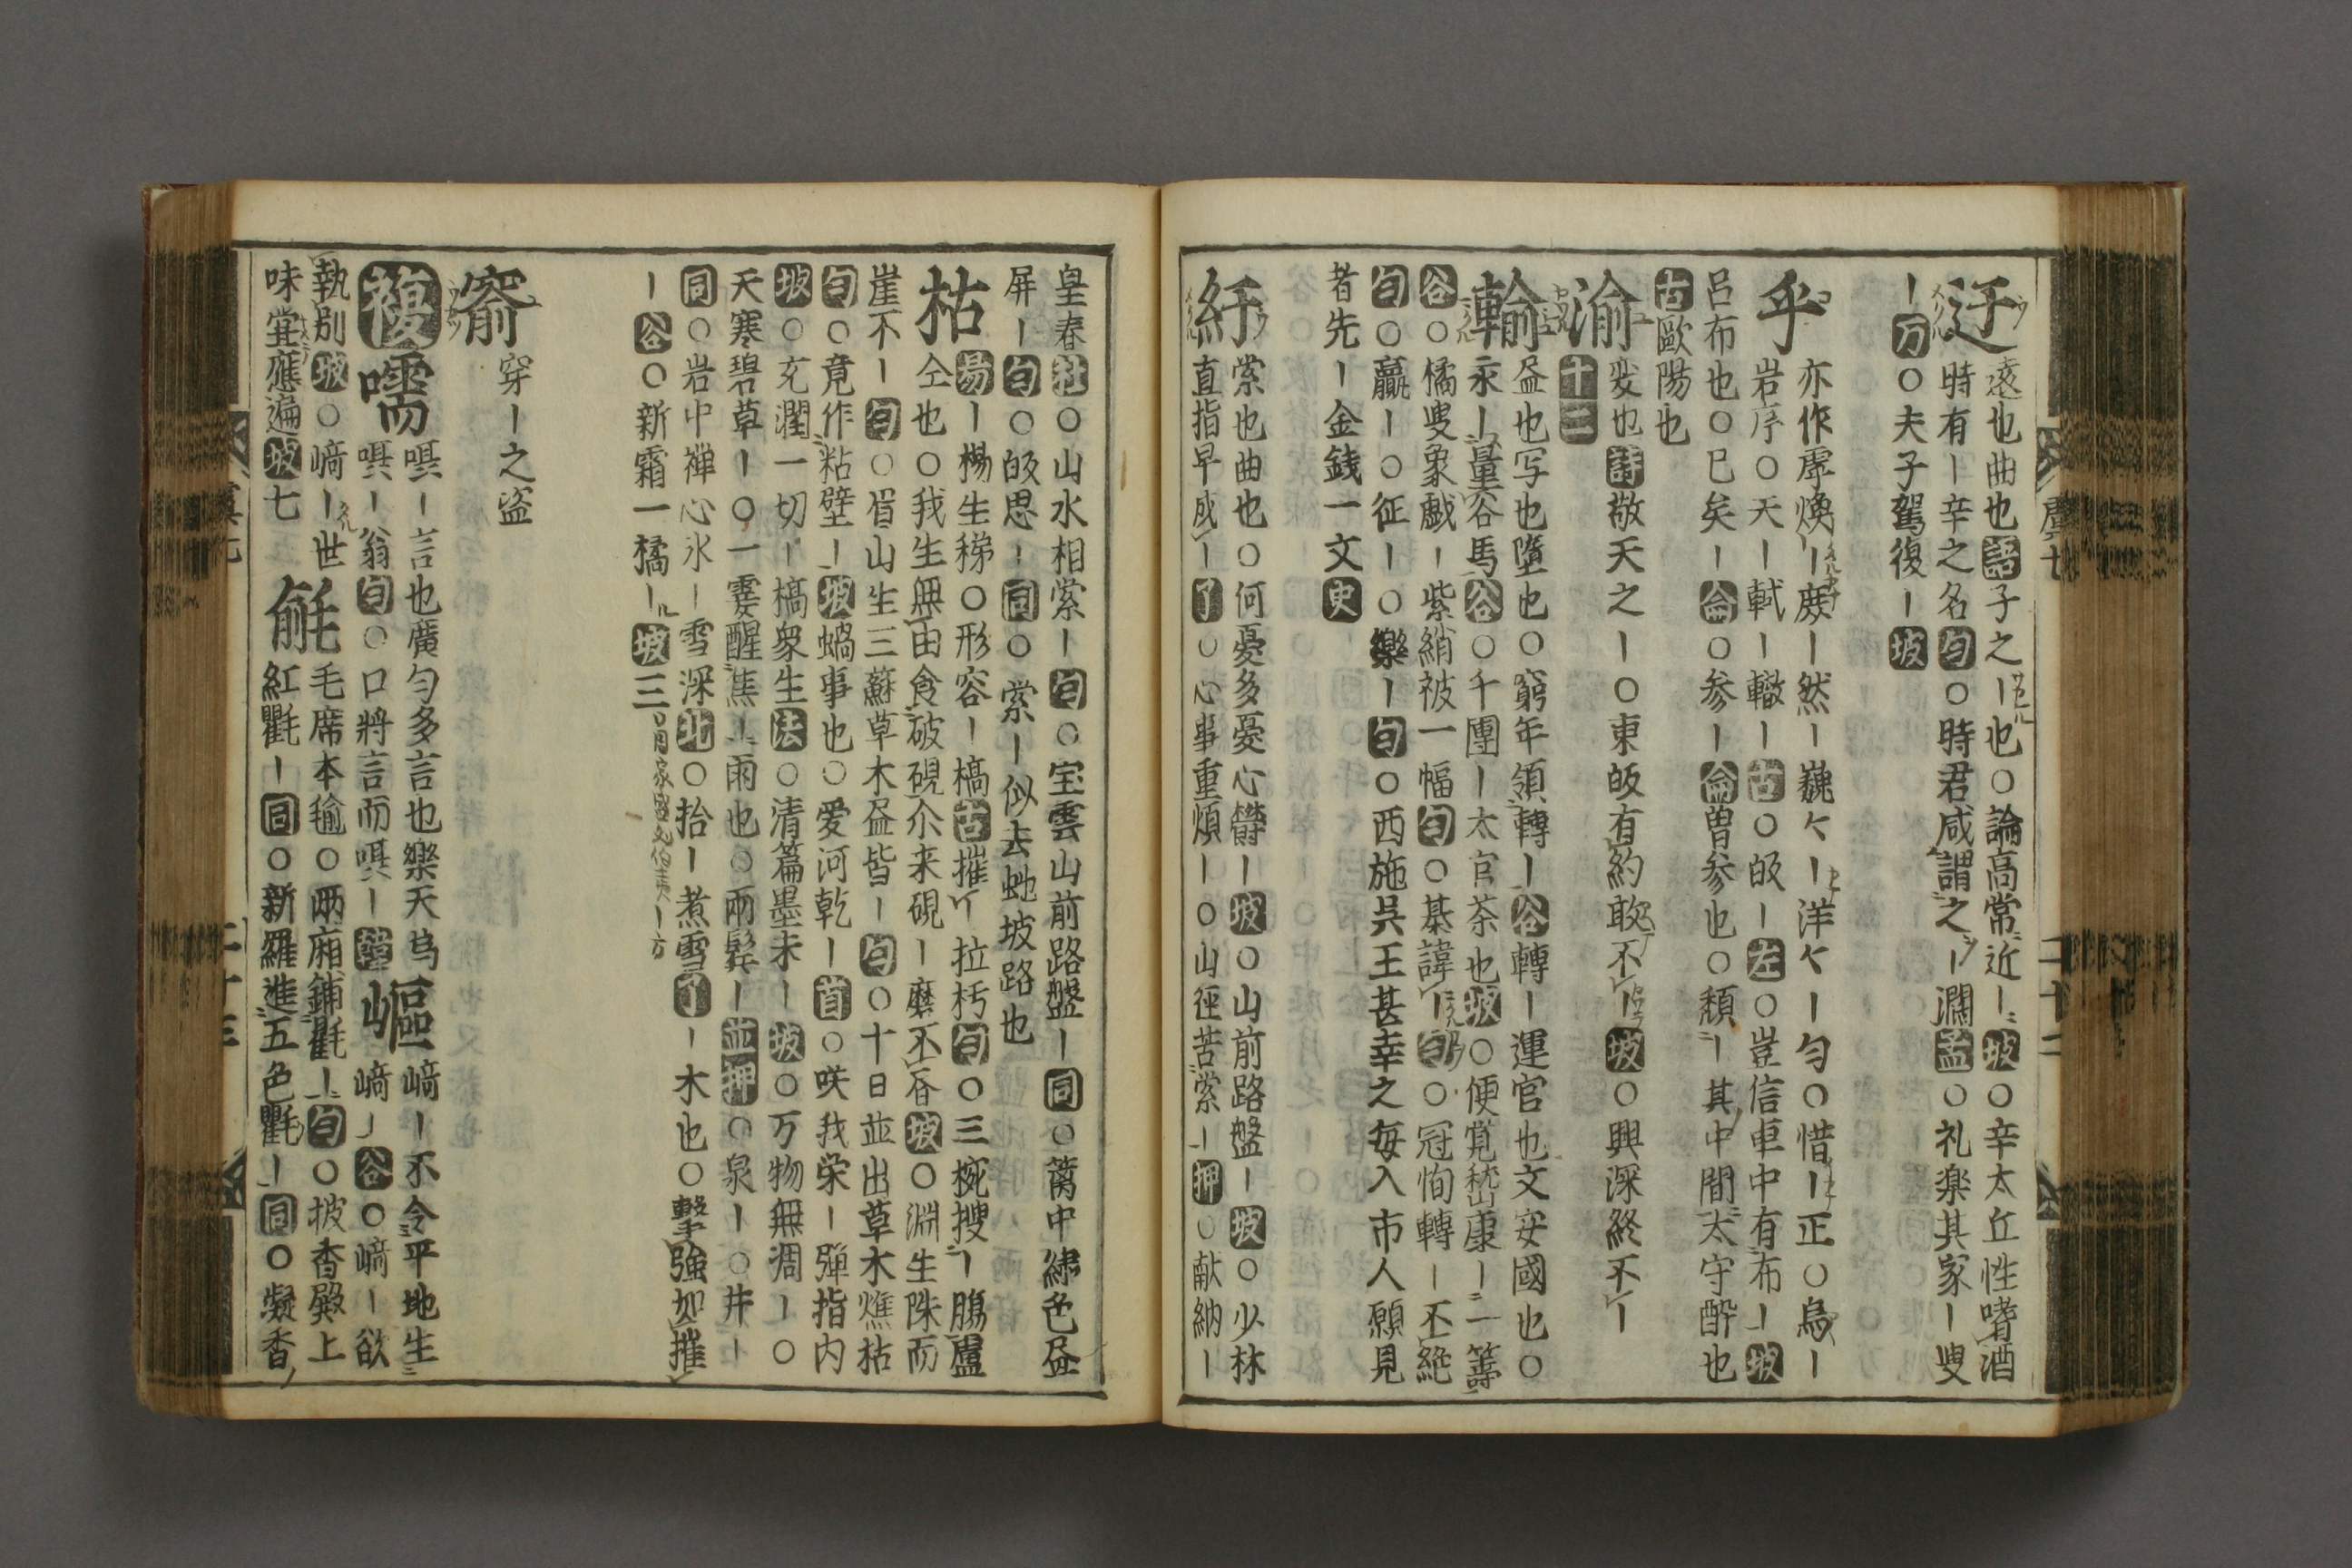 迂 遠也曲也語子之ー也○論高常近ー坡○辛太丘性嗜酒
時有ー辛之名句○時君咸謂之ー濶孟○礼楽其家ー叟
ー万○夫子駕復ー坡
乎 亦作虖煥ー蔟ー然ー巍々ー洋々ー匀○惜ー正○烏ー
岩序○天ー軾ー轍ー古○皈ー左○豈信車中有布ー坡
呂布也○已矣ー論○参ー論曽参也○頽ー其中間太守酔也
古歐陽也
渝 変也詩敬天之ー○東皈有約敢不ー坡○興深終不ー
十二
輸 益也写也墮也○窮年領轉ー谷轉ー運官也文安國也○
汞ー量谷馬谷○千團ー太官茶也坡○便覚嵇康ー一籌
谷○橘叟象戯ー紫綃被一幅句○棊諱ー句○冠恂轉ー不絶
句○贏ー○征ー○樂ー句○西施呉王甚幸之毎入市人願見
者先ー金銭一文史
紆 縈也曲也○何憂多憂心欝ー坡○山前路盤ー坡○少林
直指早成ー了○心事重煩ー○山徑苦縈ー押○献納ー
虞七
二十二
皇春杜○山水相縈ー句○宝雲山前路盤ー同○蕅中綉色益
屏ー句○皈思ー同○縈ー似去虵坡路也
枯 仝也○我生無由食破硯尒来硯ー磨不昏坡○淵生珠而
易ー楊生稊○形容ー槁古摧ー拉朽句○三椀搜ー腸盧
崖不ー句○眉山生三蘇草木益皆ー句○十日並出草木燋枯
句○竟作粘壁ー坡蝸事也○愛河乾ー首○咲我栄ー彈指内
坡○充潤一切ー槁衆生法○清篇墨未ー坡○万物無凋ー○
天寒碧草ー○一霎醒蕉ー雨也○兩髩ー並押○泉ー○井ー
同○岩中禅心氷ー雪深北○拾ー煮雪了ー木也○擊強如摧
ー谷○新霜一橘ー坡三
窬 穿ー之盗
複 嚅 嗫ー言也廣匀多言也樂天為 嶇 﨑ー不令平地生
嗫ー翁句○口將言而嗫ー韓 﨑ー谷○﨑ー欲
執別坡○﨑ー世 毹 毛席本毺○兩廂鋪氍ー句○披香殿上
味堂應遍坡七 紅氍ー同○新羅進五色氍ー同○凝香
虞七
二十三